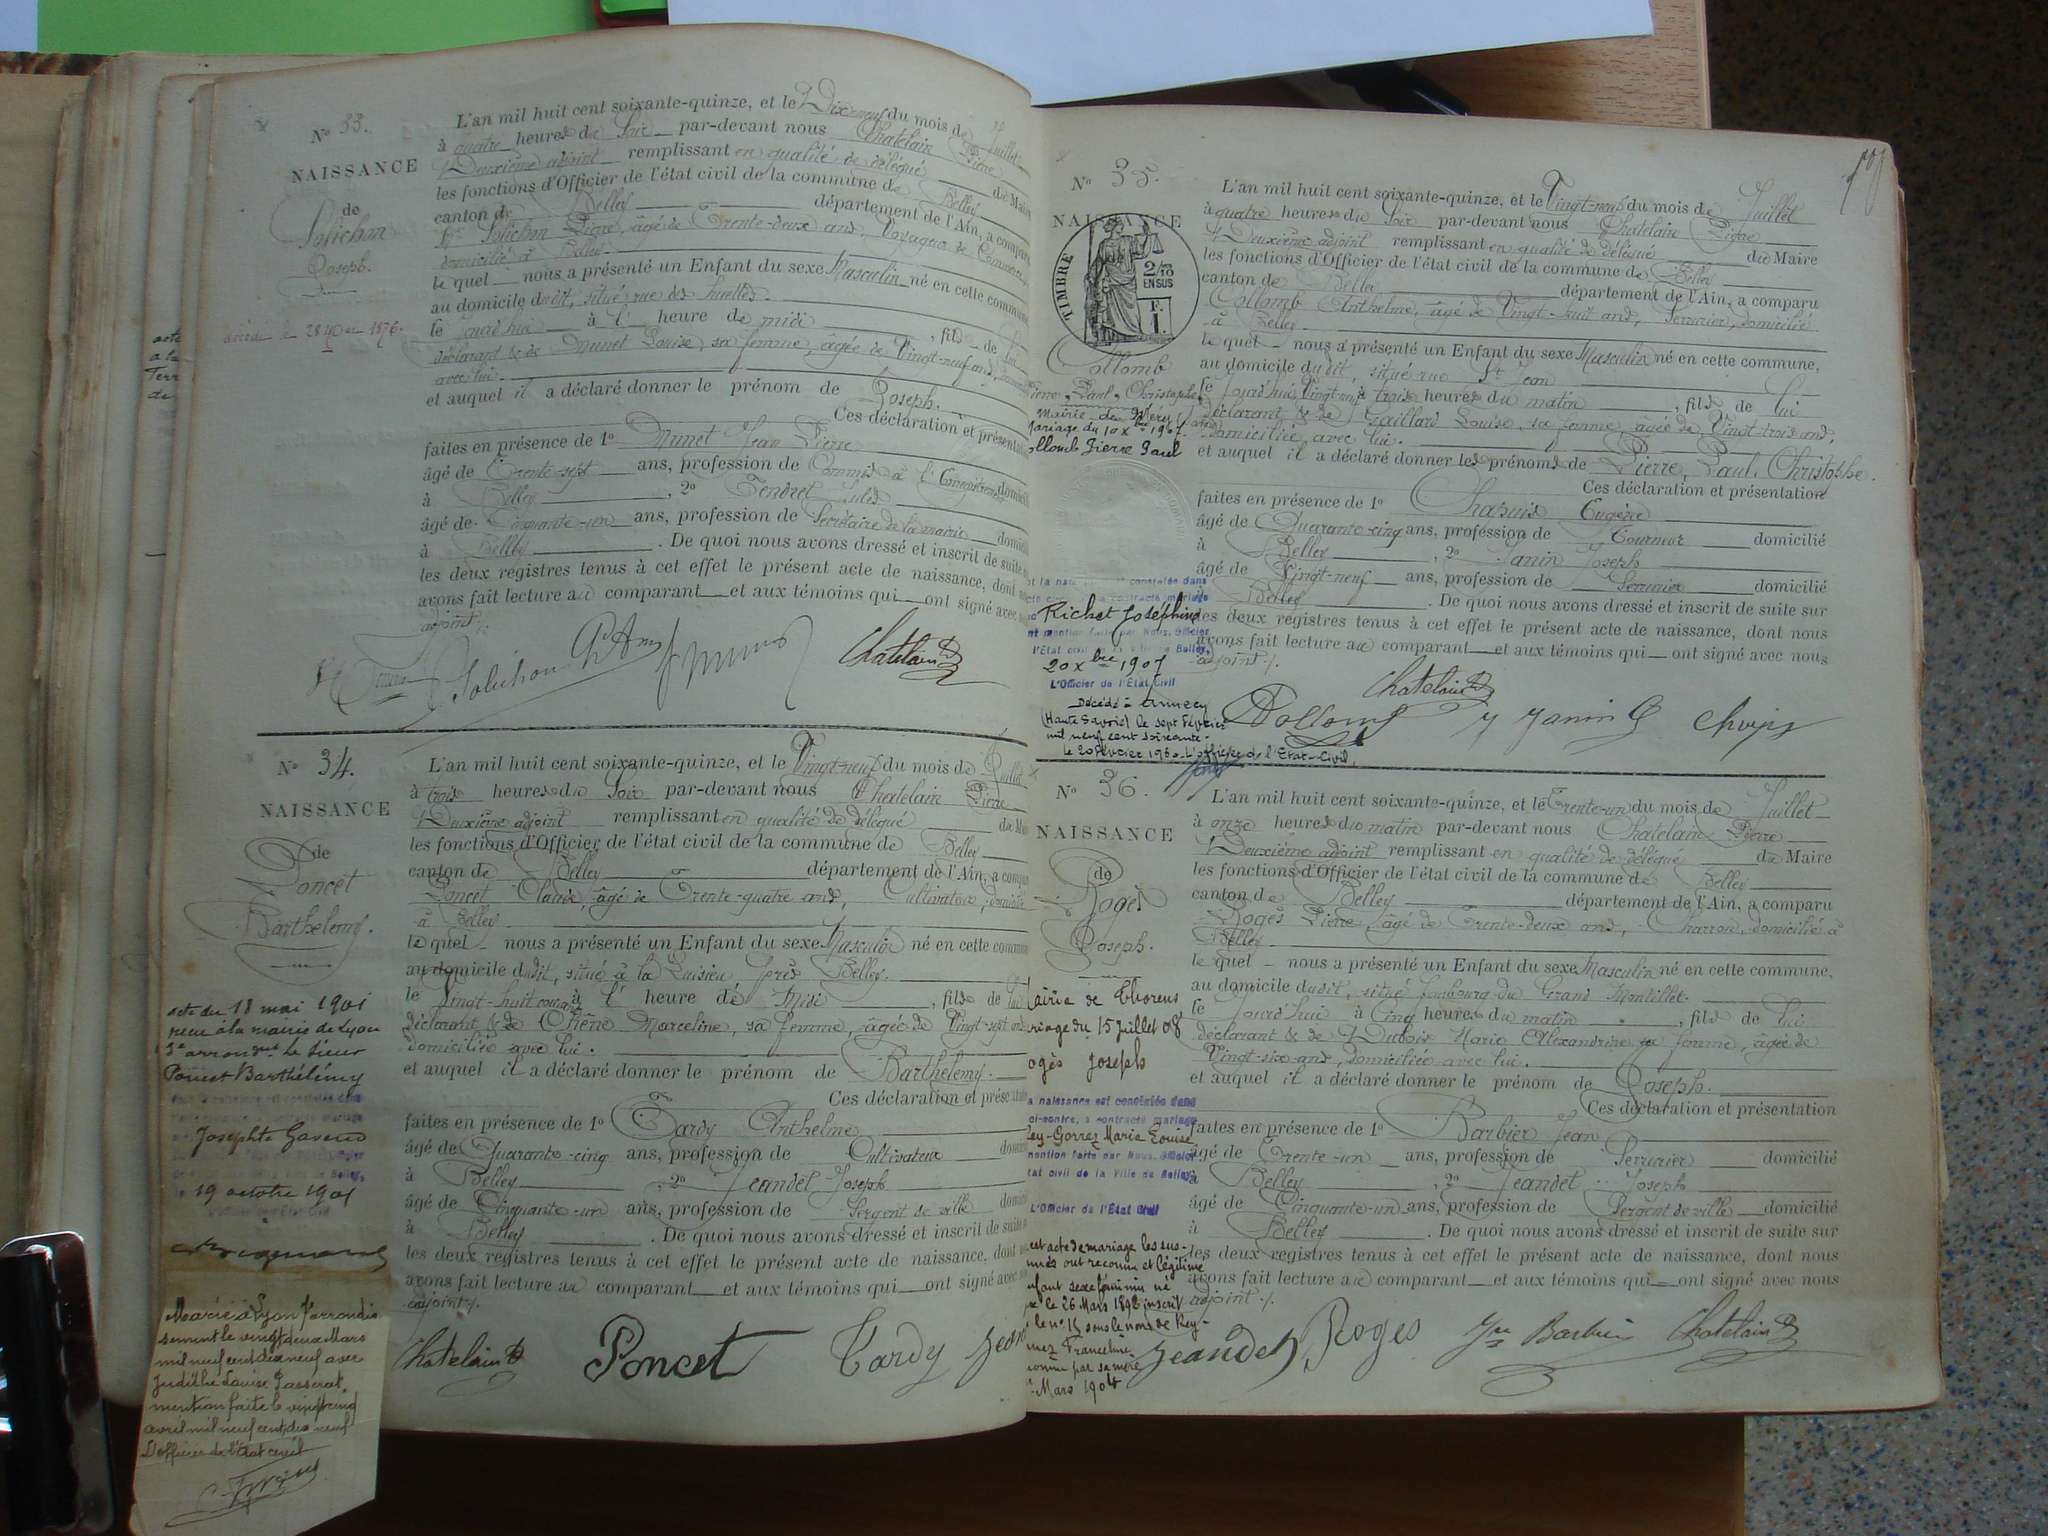 N° 33.
NAISSANCE
de
Solichon
Joseph.
décédé le 28 1876.
L'an mil huit cent soixante-quinze, et le Dix-neuf du mois de Juillet
à quatre heures du Soir par-devant nous Chatelain Pierre
Deuxième adjoint remplissant en qualité de délégué du Maire
les fonctions d'Officier de l'état civil de la commune de Belley
canton de Belley département de l'Ain, a comparu
Solichon Pierre, âgé de Trente-deux ans, Voyageur de Commerce,
domicilié à Belley.
lequel nous a présenté un Enfant du sexe Masculin né en cette commune
au domicile dudit, situé rue des
le jourd'hui à l' heure de midi, fils de lui
déclarant & de Munet Louise, sa femme, âgée de Vingt-neuf ans,
avec lui.
et auquel il a déclaré donner le prénom de Joseph.
Ces déclaration et présentation
faites en présence de 1° Munet Jean Pierre
âgé de Trente-sept ans, profession de Commis à l'Enregistrement
à Belley, 2° Tendret Jules
âgé de Cinquante-un ans, profession de Secrétaire de la mairie
à Belley. De quoi nous avons dressé et inscrit de suite
les deux registres tenus à cet effet le présent acte de naissance, dont
avons fait lecture au comparant et aux témoins qui ont signé avec
adjoint.
Solichon Chatelain
N° 34.
NAISSANCE
de
Poncet
Barthelemy.
acte du 18 mai 1901
recu à la mairie de Lyon
3e arrondt le sieur
Poncet Barthélémy
Josephte Gaveud
19 octobre 1901
Marié à Lyon 1er arrondis
sement le vingt deux Mars
mil neuf cent dix neuf avec
Judithe Louise Passerat.
mention faite le vingt cinq
avril mil neuf cent dix neuf
L'officier de l'état civil
L'an mil huit cent soixante-quinze, et le Vingt-neuf du mois de Juillet
à trois heures du Soir par-devant nous Chatelain Pierre
Deuxième adjoint remplissant en qualité de délégué du
les fonctions d'Officier de l'état civil de la commune de Belley
canton de Belley département de l'Ain, a comparu
Poncet Claude, âgé de Trente-quatre ans, Cultivateur, domicilié
à Belley.
lequel nous a présenté un Enfant du sexe Masculin né en cette commune
au domicile dudit, situé à près Belley.
le Vingt-huit courant à l' heure de Midi, fils de lui
déclarant & de Marceline, sa femme, âgée de Vingt-sept ans
domiciliée avec lui.
et auquel il a déclaré donner le prénom de Barthelemy.
Ces déclaration et présentation
faites en présence de 1° Tardy Anthelme
âgé de Quarante-cinq ans, profession de Cultivateur
à Belley, 2° Jeandet Joseph
âgé de Cinquante-un ans, profession de Sergent de ville
à Belley. De quoi nous avons dressé et inscrit de suite
les deux registres tenus à cet effet le présent acte de naissance, dont
avons fait lecture au comparant et aux témoins qui ont signé avec
adjoint.
Chatelain Poncet Tardy
N° 35.
NAISSANCE
TIMBRE
2/10
EN SUS
F.
1.
Collomb
Pierre, Paul, Christophe
Mariage du 10 Xbre 1907.
Collomb Pierre Paul
Richet Joséphine
20 Xbre 1907
L'Officier de l'État Civil
Décédé à Annecy
(Haute Savoie) le sept Février
mil neuf cent soixante.
le 20 Février 1960. L'officier de l'Etat-Civil,
L'an mil huit cent soixante-quinze, et le Vingt-neuf du mois de Juillet
à quatre heures du Soir par-devant nous Chatelain Pierre
Deuxième adjoint remplissant en qualité de délégué du Maire
les fonctions d'Officier de l'état civil de la commune de Belley
canton de Belley département de l'Ain, a comparu
Collomb Anthelme, âgé de Vingt-huit ans, Serrurier, domicilié
à Belley.
lequel nous a présenté un Enfant du sexe Masculin né en cette commune,
au domicile dudit, situé rue St Jean
le jourd'hui Vingt-neuf à trois heures du matin, fils de lui
déclarant & de Gaillard Louise, sa femme, âgée de Vingt-trois ans,
domiciliée avec lui.
et auquel il a déclaré donner les prénoms de Pierre, Paul, Christophe.
Ces déclaration et présentation
faites en présence de 1° Chapuis Eugène
âgé de Quarante-cinq ans, profession de Tourneur domicilié
à Belley, 2° Janin Joseph
âgé de Vingt-neuf ans, profession de Serrurier domicilié
à Belley. De quoi nous avons dressé et inscrit de suite sur
les deux registres tenus à cet effet le présent acte de naissance, dont nous
avons fait lecture au comparant et aux témoins qui ont signé avec nous
adjoint.
Chatelain
Collomb Janin
N° 36.
NAISSANCE
de
Rogès
Joseph.
Mairie de Thorens
Mariage du 15 Juillet 08
Rogès Joseph
la naissance est constatée dans
ci-contre, a contracté mariage
Rey-Gorrez Marie Louise
mention faite par Nous, Officier
état civil de la Ville de Belley,
L'Officier de l'État Civil
cet acte de mariage les sus-
nommés ont reconnu et légitimé
enfant sexe féminin né
le 26 Mars 1892 inscrit
le n° 15 sous le nom de Rey-
Franceline
reconnue par sa mère
Mars 1904
L'an mil huit cent soixante-quinze, et le Trente-un du mois de Juillet
à onze heures du matin par-devant nous Chatelain Pierre
Deuxième adjoint remplissant en qualité de délégué du Maire
les fonctions d'Officier de l'état civil de la commune de Belley
canton de Belley département de l'Ain, a comparu
Rogès Pierre, âgé de Trente-deux ans, Charron, domicilié à
Belley
lequel nous a présenté un Enfant du sexe Masculin né en cette commune,
au domicile dudit, situé faubourg du Grand Montillet.
le jourd'hui à cinq heures du matin, fils de lui
déclarant & de Dubois Marie Alexandrine sa femme, âgée de
Vingt-six ans, domiciliée avec lui.
et auquel il a déclaré donner le prénom de Joseph.
Ces déclaration et présentation
faites en présence de 1° Barbier Jean
âgé de Trente-un ans, profession de Serrurier domicilié
à Belley, 2° Jeandet Joseph
âgé de Cinquante-un ans, profession de Sergent de ville domicilié
à Belley. De quoi nous avons dressé et inscrit de suite sur
les deux registres tenus à cet effet le présent acte de naissance, dont nous
avons fait lecture au comparant et aux témoins qui ont signé avec nous
adjoint.
Jeandet Rogès Barbier Chatelain